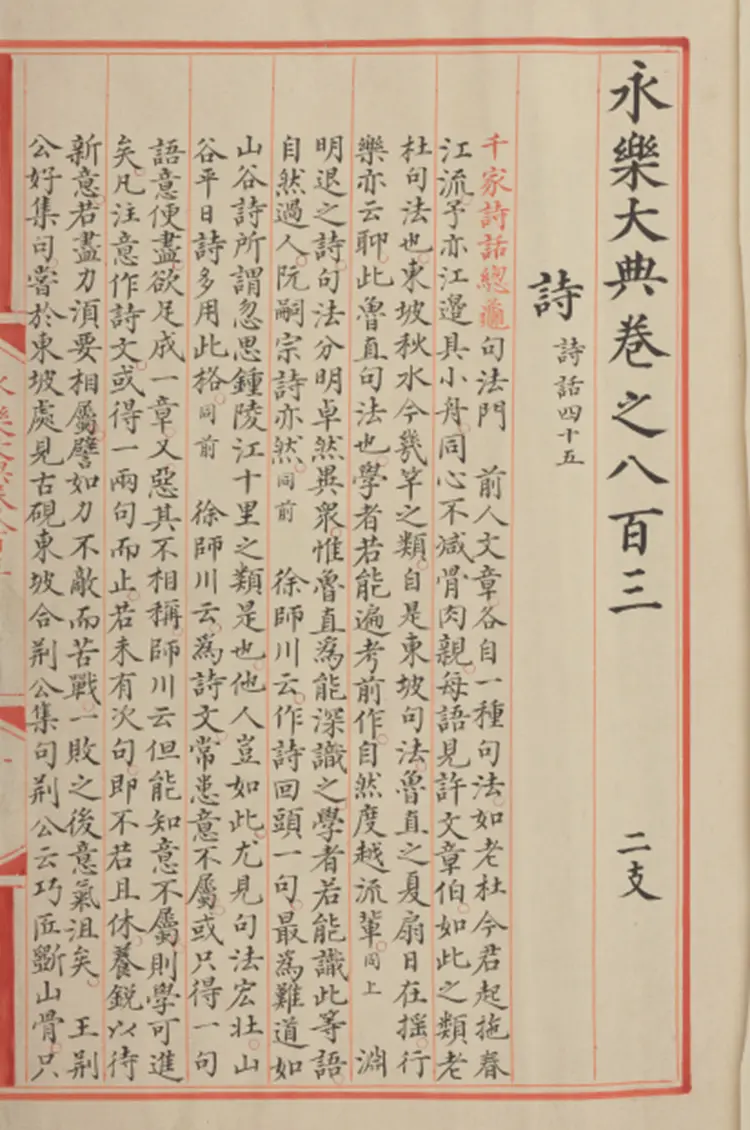 永樂大典卷之八百三 二支
詩 詩話四十五
千家詩話總龜句法門 前人文章各自一種句法。如老杜今君起拖春
江流。予亦江邊具小舟。同心不减骨肉親。每語見許文章伯。如此之類。老
杜句法也。東坡秋水今幾竿之類。自是東坡句法。魯直之夏扇日在摇。行
樂亦云聊。此魯直句法也。學者若能遍考前作。自然度越流輩。同上 淵
明退之詩。句法分明。卓然異衆。惟魯直爲能深識之。學者若能識此等語。
自然過人。阮嗣宗詩亦然。同前 徐師川云。作詩回頭一句。最爲難道。如
山谷詩所謂忽思鍾陵江十里之類是也。他人豈如此。尤見句法宏壯。山
谷平日詩多用此格。同前 徐師川云。爲詩文常患意不屬。或只得一句
語意便盡。欲足成一章。又惡其不相稱。師川云但能知意不屬。則學可進
矣。凡注意作詩文。或得一兩句而止。若未有次句。即不若且休。養鋭以待
新意。若盡力須要相屬。譬如力不敵而苦戰。一敗之後意氣沮矣。 王荆
公好集句。嘗於東坡處見古硯東坡合荆公集句荆公云巧匠斲山骨。只